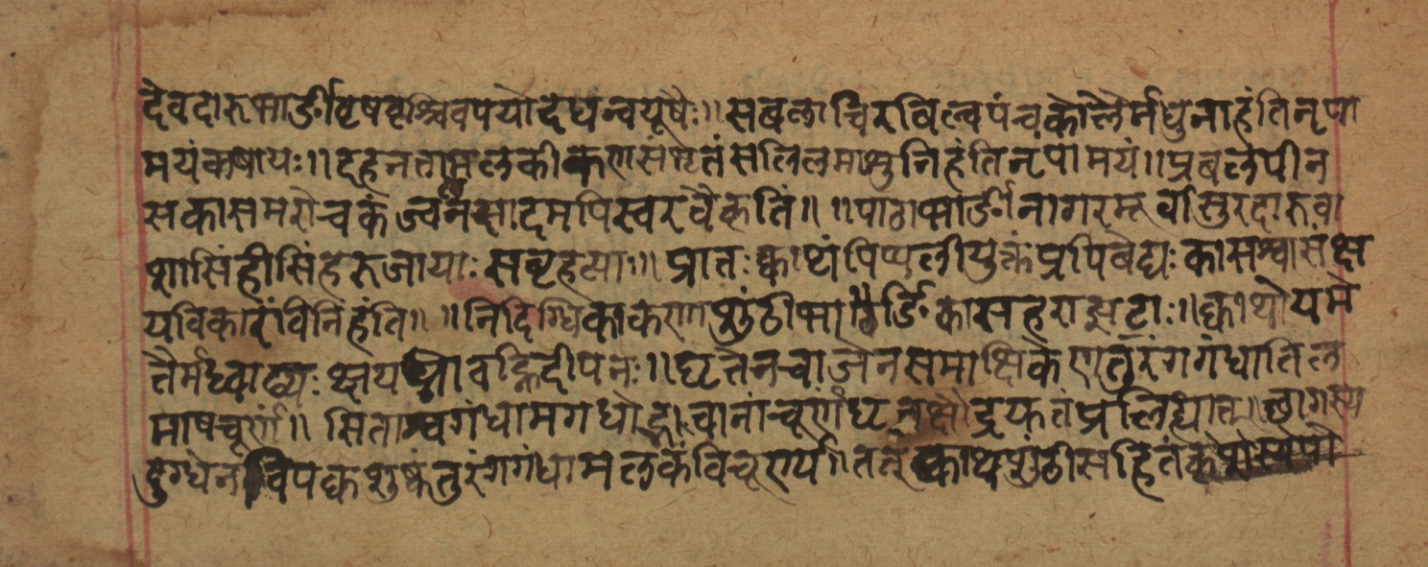 देवदारुभार्ङीवृषवृश्चिवपयोदधन्वयूषैः॥सबलाचिरविल्वपंचकोलैर्मधुनाहंतिनृपा
मयंकषायः॥दहनतामलकीकणसमृतंसलिलमाशुनिहंतिनृपामयं॥प्रबलपीन
सकासमरोचकंज्वरनसादमपिस्वरवैकृतिं॥॥पाठाभार्ङीनागरमूर्वासुरदारुवा
शासिंहीसिंहरुजायाःसबृहत्या॥प्रातःक्वाथंपिप्पलीयुक्तंप्रपिबेद्यःकासश्वासंक्ष
यविकारांविनिहंति॥॥निदिग्धिकाकणाशुंठीभार्ङिकासहराझटाः॥क्वाथोयमे
तैर्मध्वाढ्यःक्षयघ्नोवह्निदीपनः॥घृतेनचाजेनसमाक्षिकेणतुरंगगंधातिल
माषचूर्णं॥सिताश्वगंधामगधोद्भवानांचूर्णंघृतक्षौद्रयुतंप्रलिह्यात्॥छागस्य
दुग्धेनविपक्वशुष्कंतुरंगगंधामलकंविचूर्ण्य॥ततंक्वाथशुंठीसहितं